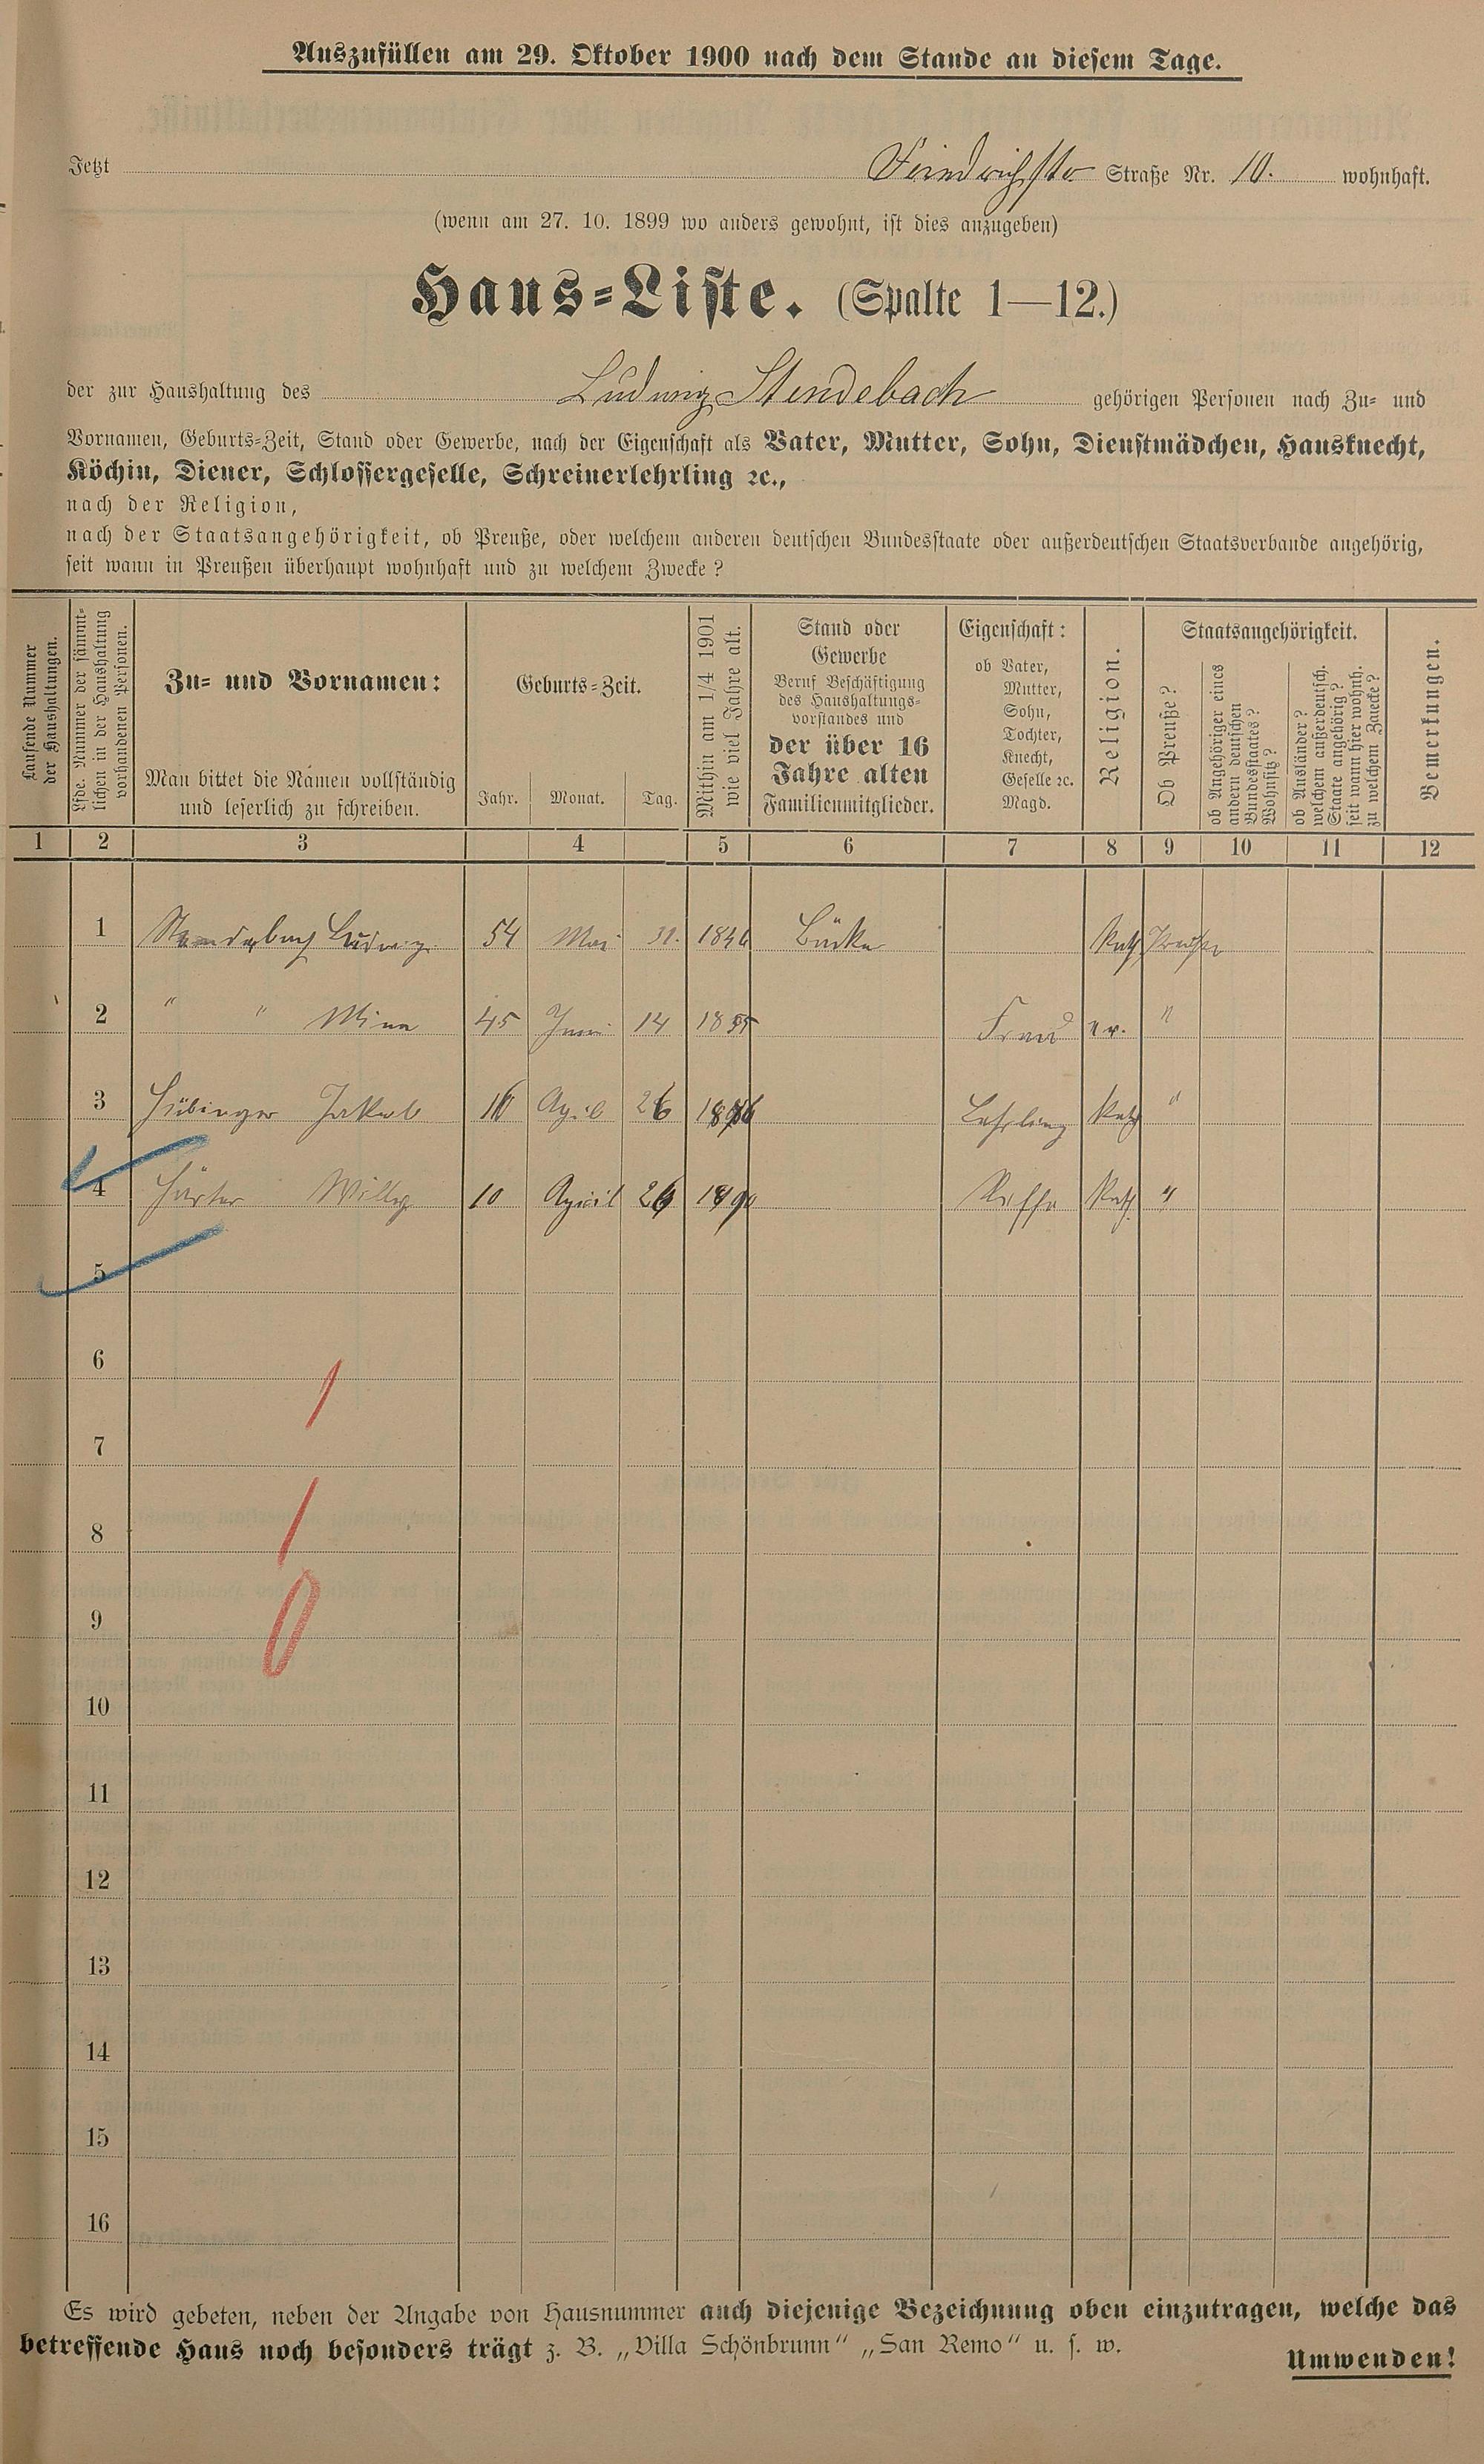 Auszufüllen am 29. Oktober 1900 nach dem Stande an diesem Tage.
Jetzt Friedrichstr Straße Nr. 10. wohnhaft.
(wenn am 27. 10. 1899 wo anders gewohnt, ist dies anzugeben)
Haus-Liste. (Spalte 1—12.)
der zur Haushaltung des Ludwig Stendebach gehörigen Personen nach Zu- und
Vornamen, Geburts-Zeit, Stand oder Gewerbe, nach der Eigenschaft als Vater, Mutter, Sohn, Dienstmädchen, Hausknecht,
Köchin, Diener, Schlossergeselle, Schreinerlehrling ꝛc.,
nach der Religion,
nach der Staatsangehörigkeit, ob Preuße, oder welchem anderen deutschen Bundesstaate oder außerdeutschen Staatsverbande angehörig,
seit wann in Preußen überhaupt wohnhaft und zu welchem Zwecke?
Laufende Nummer
der Haushaltungen.
Lfde. Nummer der sämmt-
lichen in der Haushaltung
vorhandenen Personen.
Zu- und Vornamen:
Man bittet die Namen vollständig
und leserlich zu schreiben.
Geburts-Zeit.
Jahr. Monat. Tag.
Mithin am 1/4 1901
wie viel Jahre alt.
Stand oder
Gewerbe
Beruf Beschäftigung
des Haushaltungs-
vorstandes und
der über 16
Jahre alten
Familienmitglieder.
Eigenschaft:
ob Vater,
Mutter,
Sohn,
Tochter,
Knecht,
Geselle ꝛc.
Magd.
Religion.
Staatsangehörigkeit.
Ob Preuße?
ob Angehöriger eines
andern deutschen
Bundesstaates?
Wohnsitz?
ob Ausländer?
welchem außerdeutsch.
Staate angehörig?
seit wann hier wohnh.
zu welchem Zwecke?
Bemerkungen.
1 2 3 4 5 6 7 8 9 10 11 12
1 Stendebach Ludwig 54 Mai 31. 1846 Kath Preuße
2 " " Mina 45 Juni 14 1855 Frau ev. "
3 Hübinger Jakob 16 April 26 Lehrling Kath "
4 Willy 10 April 26 1890 Kath. "
5
6
7
8
9
10
11
12
13
14
15
16
Es wird gebeten, neben der Angabe von Hausnummer auch diejenige Bezeichnung oben einzutragen, welche das
betreffende Haus noch besonders trägt z. B. „Villa Schönbrunn“ „San Remo“ u. s. w.
Umwenden!